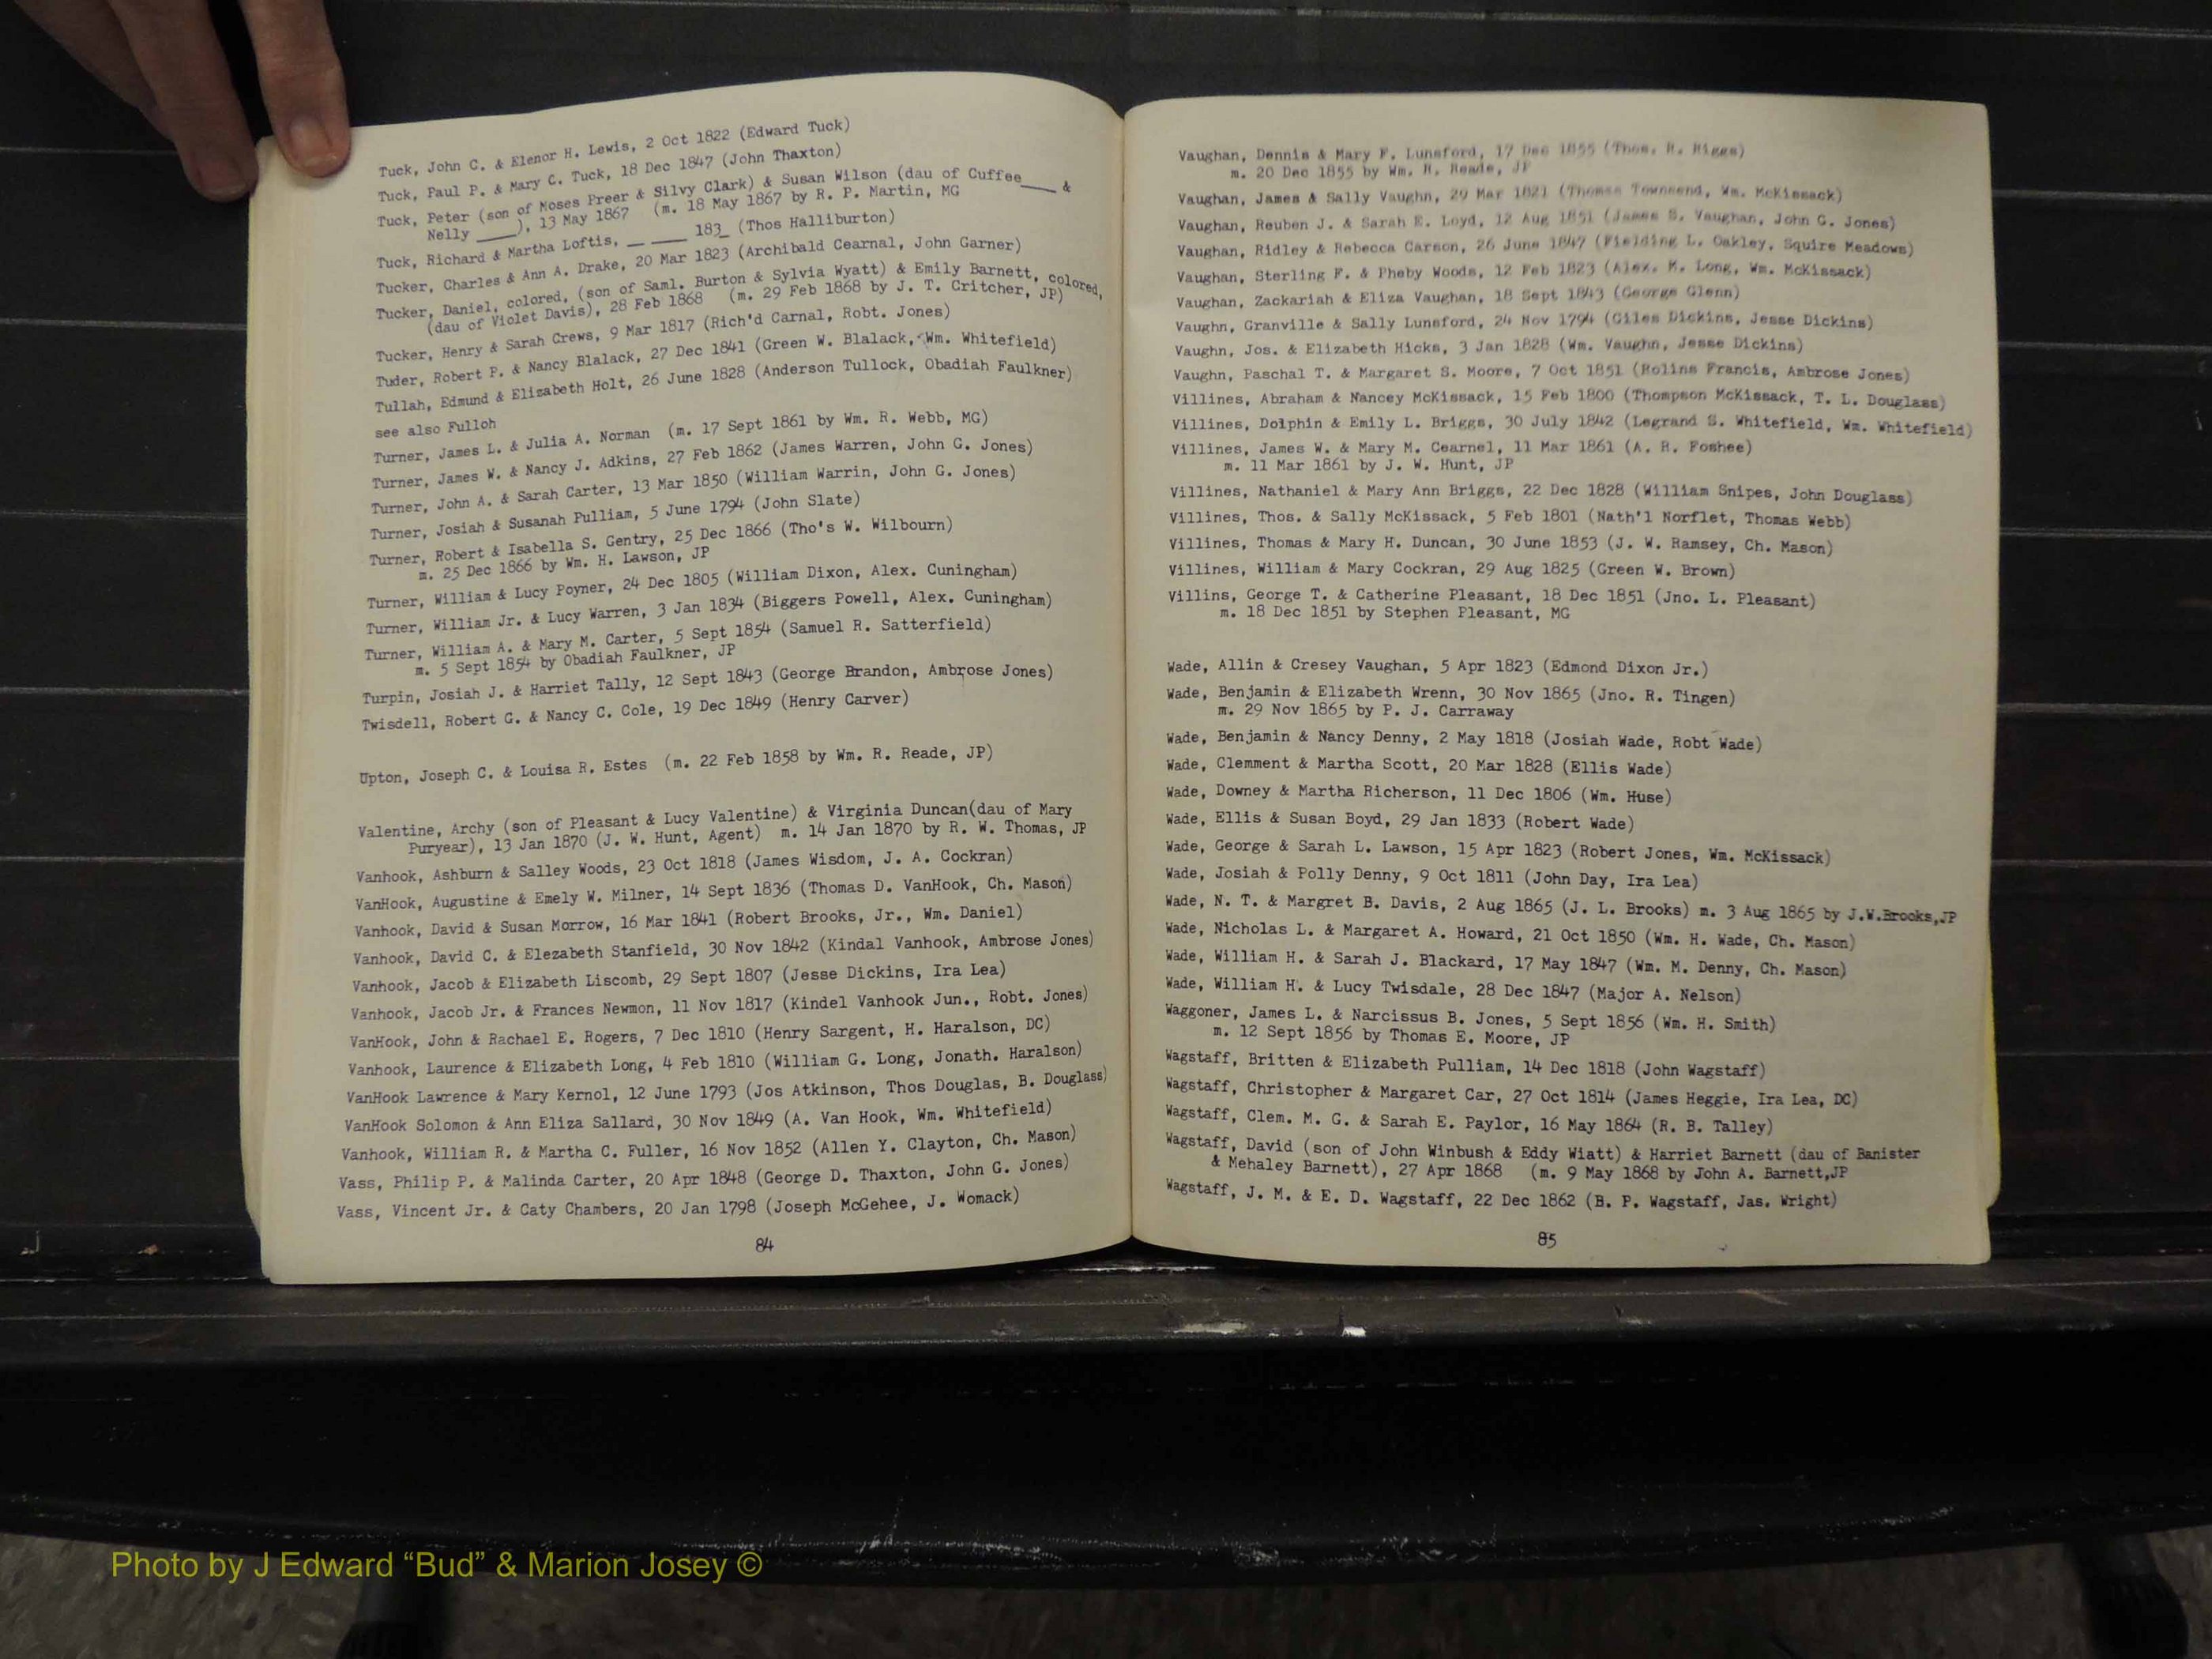 Tuck, John C. & Elenor H. Lewis, 2 Oct 1822 (Edward Tuck)
Tuck, Paul P. & Mary C. Tuck, 18 Dec 1847 (John Thaxton)
Tuck, Peter (son of Moses Preer & Silvy Clark) & Susan Wilson (dau of Cuffee____ &
Nelly ____), 13 May 1867 (m. 18 May 1867 by R. P. Martin, MG
Tuck, Richard & Martha Loftis, __ ____ 183_ (Thos Halliburton)
Tucker, Charles & Ann A. Drake, 20 Mar 1823 (Archibald Cearnal, John Garner)
Tucker, Daniel, colored, (son of Saml. Burton & Sylvia Wyatt) & Emily Barnett, colored,
(dau of Violet Davis), 28 Feb 1868 (m. 29 Feb 1868 by J. T. Critcher, JP)
Tucker, Henry & Sarah Crews, 9 Mar 1817 (Rich'd Carnal, Robt. Jones)
Tuder, Robert P. & Nancy Blalack, 27 Dec 1841 (Green W. Blalack, Wm. Whitefield)
Tullah, Edmund & Elizabeth Holt, 26 June 1828 (Anderson Tullock, Obadiah Faulkner)
see also Fulloh
Turner, James L. & Julia A. Norman (m. 17 Sept 1861 by Wm. R. Webb, MG)
Turner, James W. & Nancy J. Adkins, 27 Feb 1862 (James Warren, John G. Jones)
Turner, John A. & Sarah Carter, 13 Mar 1850 (William Warrin, John G. Jones)
Turner, Josiah & Susanah Pulliam, 5 June 1794 (John Slate)
Turner, Robert & Isabella S. Gentry, 25 Dec 1866 (Tho's W. Wilbourn)
m. 25 Dec 1866 by Wm. H. Lawson, JP
Turner, William & Lucy Poyner, 24 Dec 1805 (William Dixon, Alex. Cuningham)
Turner, William Jr. & Lucy Warren, 3 Jan 1834 (Biggers Powell, Alex. Cuningham)
Turner, William A. & Mary M. Carter, 5 Sept 1854 (Samuel R. Satterfield)
m. 5 Sept 1854 by Obadiah Faulkner, JP
Turpin, Josiah J. & Harriet Tally, 12 Sept 1843 (George Brandon, Ambrose Jones)
Twisdell, Robert G. & Nancy C. Cole, 19 Dec 1849 (Henry Carver)
Upton, Joseph C. & Louisa R. Estes (m. 22 Feb 1858 by Wm. R. Reade, JP)
Valentine, Archy (son of Pleasant & Lucy Valentine) & Virginia Duncan(dau of Mary
Puryear), 13 Jan 1870 (J. W. Hunt, Agent) m. 14 Jan 1870 by R. W. Thomas, JP
Vanhook, Ashburn & Salley Woods, 23 Oct 1818 (James Wisdom, J. A. Cockran)
VanHook, Augustine & Emely W. Milner, 14 Sept 1836 (Thomas D. VanHook, Ch. Mason)
Vanhook, David & Susan Morrow, 16 Mar 1841 (Robert Brooks, Jr., Wm. Daniel)
Vanhook, David C. & Elezabeth Stanfield, 30 Nov 1842 (Kindal Vanhook, Ambrose Jones)
Vanhook, Jacob & Elizabeth Liscomb, 29 Sept 1807 (Jesse Dickins, Ira Lea)
Vanhook, Jacob Jr. & Frances Newmon, 11 Nov 1817 (Kindel Vanhook Jun., Robt. Jones)
VanHook, John & Rachael E. Rogers, 7 Dec 1810 (Henry Sargent, H. Haralson, DC)
Vanhook, Laurence & Elizabeth Long, 4 Feb 1810 (William G. Long, Jonath. Haralson)
VanHook Lawrence & Mary Kernol, 12 June 1793 (Jos Atkinson, Thos Douglas, B. Douglass)
VanHook Solomon & Ann Eliza Sallard, 30 Nov 1849 (A. Van Hook, Wm. Whitefield)
Vanhook, William R. & Martha C. Fuller, 16 Nov 1852 (Allen Y. Clayton, Ch. Mason)
Vass, Philip P. & Malinda Carter, 20 Apr 1848 (George D. Thaxton, John G. Jones)
Vass, Vincent Jr. & Caty Chambers, 20 Jan 1798 (Joseph McGehee, J. Womack)
84
Vaughan, Dennis & Mary F. Lunsford, 17 Dec 1855 (Thos. R. Riggs)
m. 20 Dec 1855 by Wm. R. Reade, JP
Vaughan, James & Sally Vaughn, 29 Mar 1821 (Thomas Townsend, Wm. McKissack)
Vaughan, Reuben J. & Sarah E. Loyd, 12 Aug 1851 (James S. Vaughan, John G. Jones)
Vaughan, Ridley & Rebecca Carson, 26 June 1847 (Fielding L. Oakley, Squire Meadows)
Vaughan, Sterling F. & Pheby Woods, 12 Feb 1823 (Alex. M. Long, Wm. McKissack)
Vaughan, Zackariah & Eliza Vaughan, 18 Sept 1843 (George Glenn)
Vaughn, Granville & Sally Lunsford, 24 Nov 1794 (Giles Dickins, Jesse Dickins)
Vaughn, Jos. & Elizabeth Hicks, 3 Jan 1828 (Wm. Vaughn, Jesse Dickins)
Vaughn, Paschal T. & Margaret S. Moore, 7 Oct 1851 (Rolins Francis, Ambrose Jones)
Villines, Abraham & Nancey McKissack, 15 Feb 1800 (Thompson McKissack, T. L. Douglass)
Villines, Dolphin & Emily L. Briggs, 30 July 1842 (Legrand S. Whitefield, Wm. Whitefield)
Villines, James W. & Mary M. Cearnel, 11 Mar 1861 (A. R. Foshee)
m. 11 Mar 1861 by J. W. Hunt, JP
Villines, Nathaniel & Mary Ann Briggs, 22 Dec 1828 (William Snipes, John Douglass)
Villines, Thos. & Sally McKissack, 5 Feb 1801 (Nath'l Norflet, Thomas Webb)
Villines, Thomas & Mary H. Duncan, 30 June 1853 (J. W. Ramsey, Ch. Mason)
Villines, William & Mary Cockran, 29 Aug 1825 (Green W. Brown)
Villins, George T. & Catherine Pleasant, 18 Dec 1851 (Jno. L. Pleasant)
m. 18 Dec 1851 by Stephen Pleasant, MG
Wade, Allin & Cresey Vaughan, 5 Apr 1823 (Edmond Dixon Jr.)
Wade, Benjamin & Elizabeth Wrenn, 30 Nov 1865 (Jno. R. Tingen)
m. 29 Nov 1865 by P. J. Carraway
Wade, Benjamin & Nancy Denny, 2 May 1818 (Josiah Wade, Robt Wade)
Wade, Clemment & Martha Scott, 20 Mar 1828 (Ellis Wade)
Wade, Downey & Martha Richerson, 11 Dec 1806 (Wm. Huse)
Wade, Ellis & Susan Boyd, 29 Jan 1833 (Robert Wade)
Wade, George & Sarah L. Lawson, 15 Apr 1823 (Robert Jones, Wm. McKissack)
Wade, Josiah & Polly Denny, 9 Oct 1811 (John Day, Ira Lea)
Wade, N. T. & Margret B. Davis, 2 Aug 1865 (J. L. Brooks) m. 3 Aug 1865 by J.W.Brooks,JP
Wade, Nicholas L. & Margaret A. Howard, 21 Oct 1850 (Wm. H. Wade, Ch. Mason)
Wade, William H. & Sarah J. Blackard, 17 May 1847 (Wm. M. Denny, Ch. Mason)
Wade, William H. & Lucy Twisdale, 28 Dec 1847 (Major A. Nelson)
Waggoner, James L. & Narcissus B. Jones, 5 Sept 1856 (Wm. H. Smith)
m. 12 Sept 1856 by Thomas E. Moore, JP
Wagstaff, Britten & Elizabeth Pulliam, 14 Dec 1818 (John Wagstaff)
Wagstaff, Christopher & Margaret Car, 27 Oct 1814 (James Heggie, Ira Lea, DC)
Wagstaff, Clem. M. G. & Sarah E. Paylor, 16 May 1864 (R. B. Talley)
Wagstaff, David (son of John Winbush & Eddy Wiatt) & Harriet Barnett (dau of Banister
& Mehaley Barnett), 27 Apr 1868 (m. 9 May 1868 by John A. Barnett,JP
Wagstaff, J. M. & E. D. Wagstaff, 22 Dec 1862 (B. P. Wagstaff, Jas. Wright)
85
Photo by J Edward “Bud” & Marion Josey ©